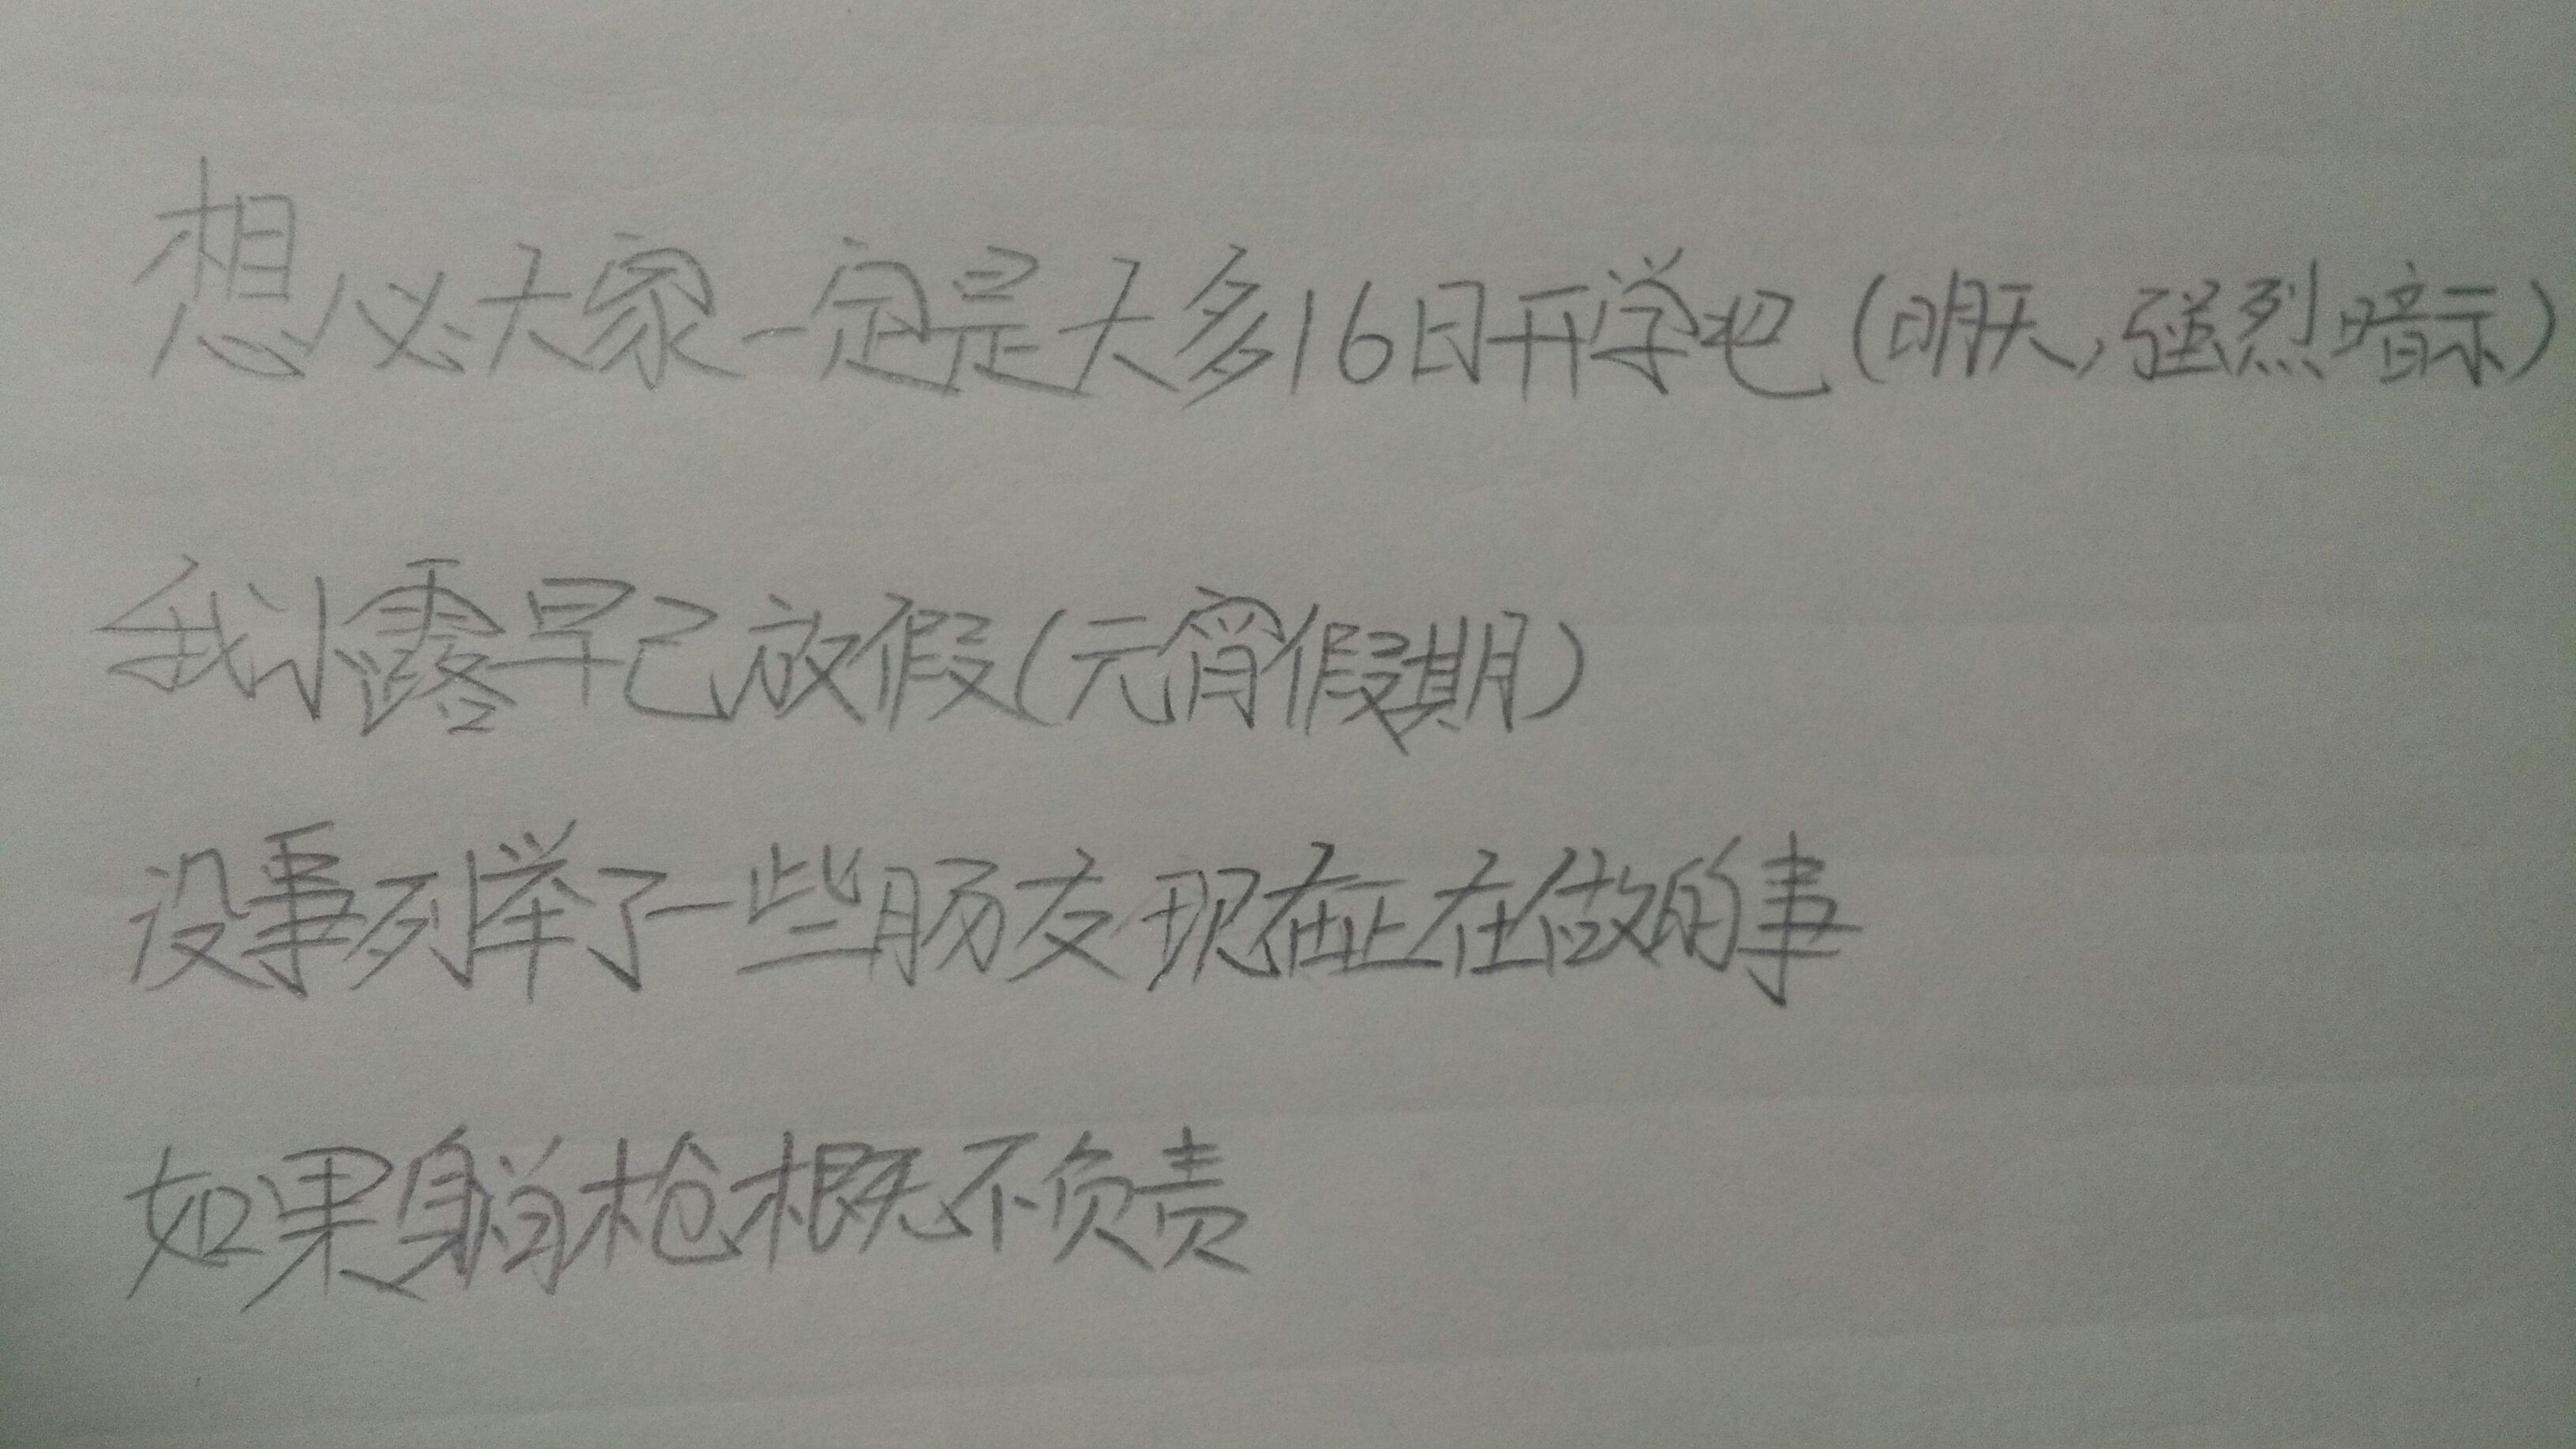 想必大家一定是大多16日开学吧(明天,强烈暗示)
我小露早已放假(元宵假期)
没事列举了一些肠友现在正在做的事
如果躺枪概不负责